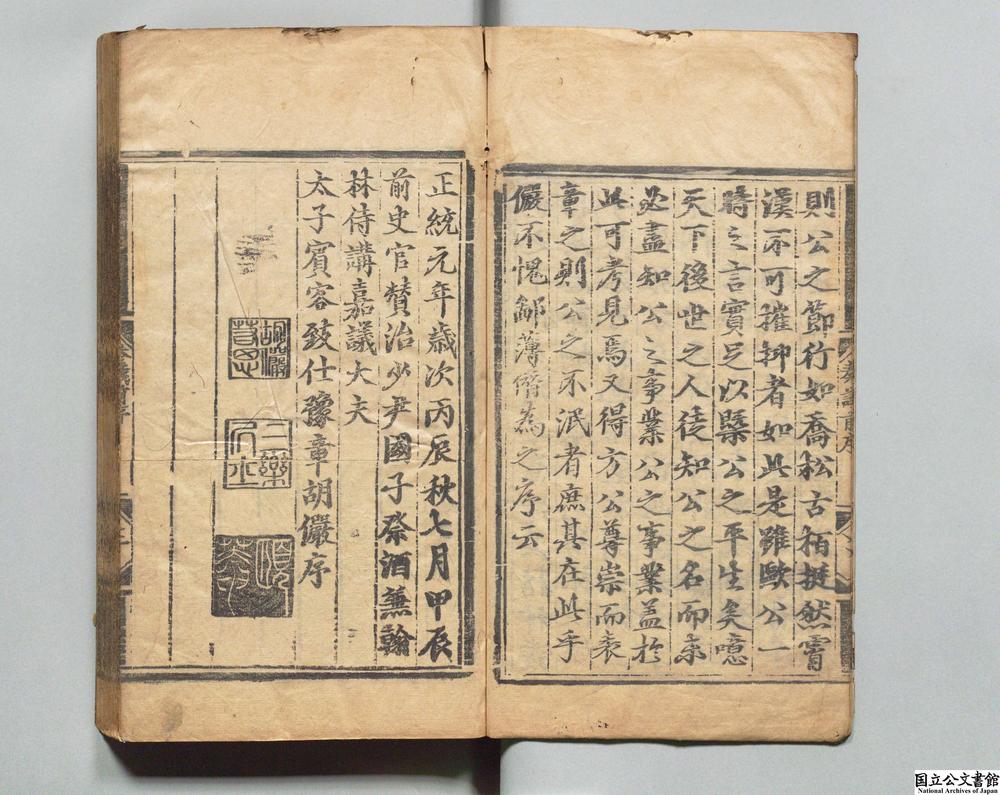 則公之節行如喬松古栢挺然霄
漢不可摧抑者如此是雖歐公一
時之言實足以槩公之平生矣噫
天下後世之人徒知公之名而未
必盡知公之事業公之事業盖於
此可考見焉又得方公尊崇而表
章之則公之不泯者庶其在此乎
儼不愧鄙薄僭為之序云
正統元年歲次丙辰秋七月甲辰
前史官賛治少尹國子祭酒蕪翰
林侍講嘉議大夫
太子賓客致仕豫章胡儼序
胡儼
國立公文書館
National Archives of Japan